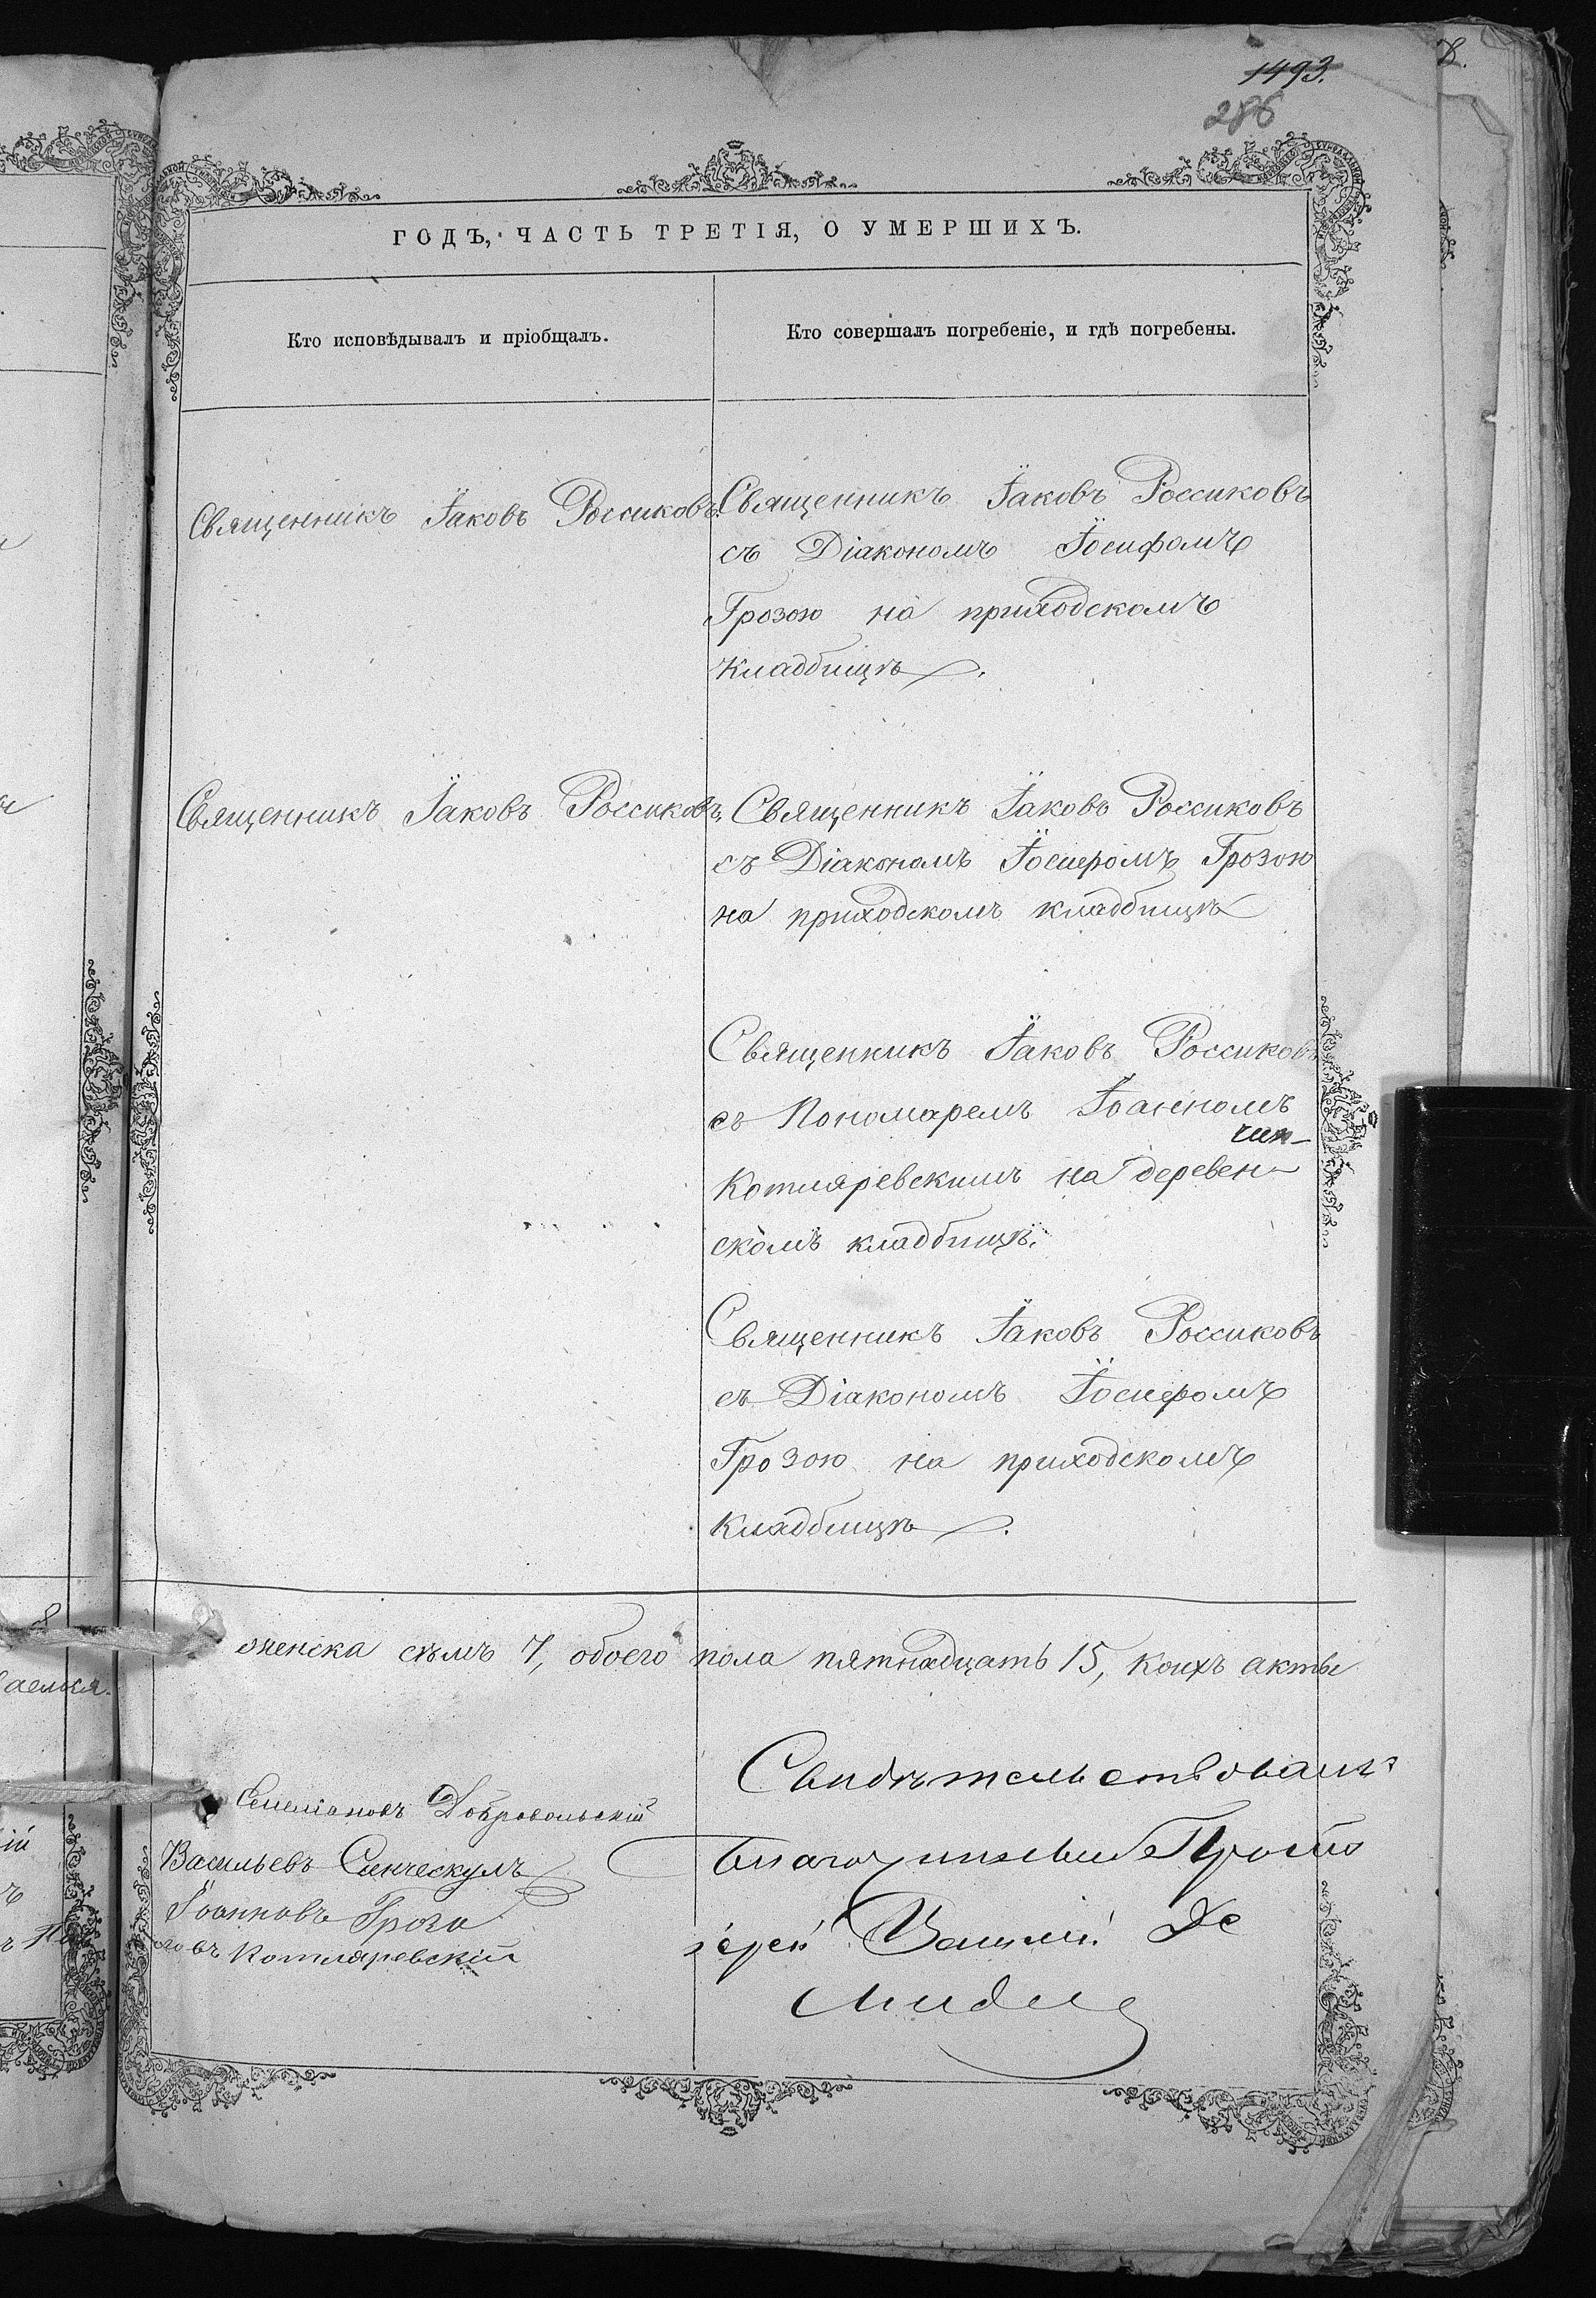 1493.
286
ГОДЪ, ЧАСТЬ ТРЕТІЯ, О УМЕРШИХЪ.
Кто исповѣдывалъ и пріобщалъ.
Кто совершалъ погребеніе, и гдѣ погребены.
Священникъ Іаковъ Россиковъ.
Священникъ Іаковъ Россиковъ
съ Діакономъ Іосифомъ
Грозою на приходскомъ
кладбищѣ.
Священникъ Іаковъ Россиковъ.
Священникъ Іаковъ Россиковъ
съ Діакономъ Іосифомъ Грозою
на приходскомъ кладбищѣ
Священникъ Іаковъ Россиковъ
съ Пономаремъ Іоанномъ
Котляревскимъ на деревен-
скомъ кладбищѣ.
Священникъ Іаковъ Россиковъ
съ Діакономъ Іосифомъ
Грозою на приходскомъ
кладбищѣ.
женска сѣмъ 7, обоего пола пятнадцать 15, коихъ акты
Свидѣтельствовалъ
Благочинный Прото
іерей
Добровольскій
Васильевъ
Іоанновъ Гроза
Котляревскій